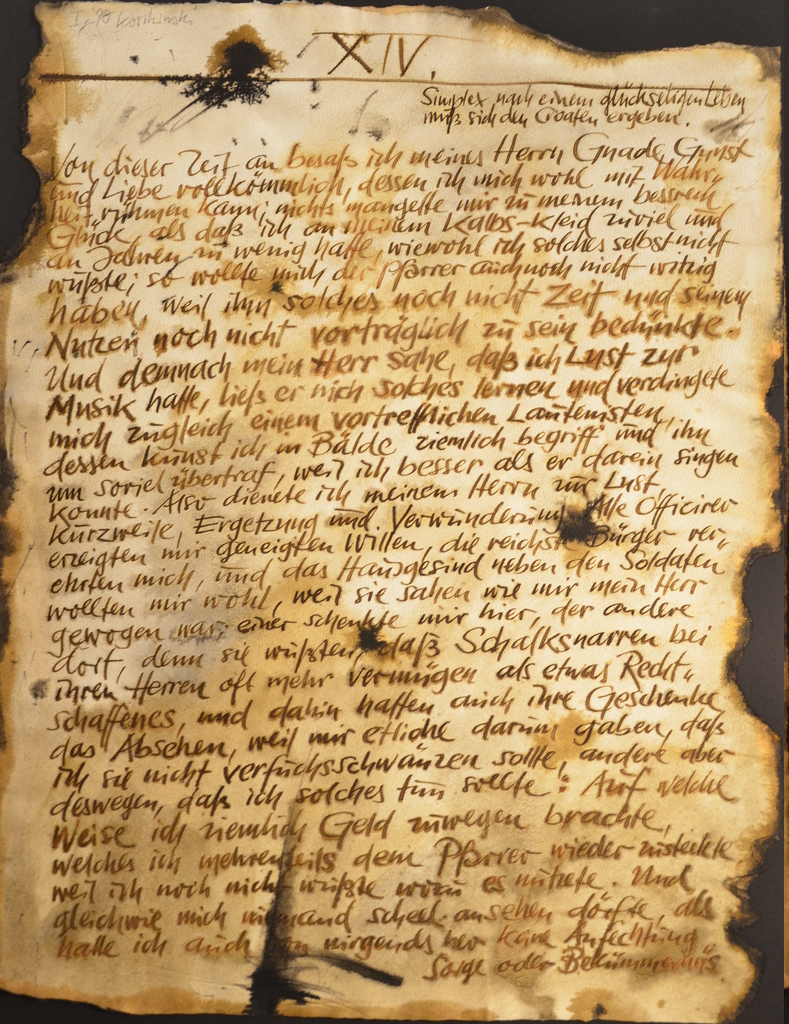 XIV.
Simplex, nach einem glückseligen Leben
muß sich den Croaten ergeben.
Von dieser Zeit an besaß ich meines Herrn Gnade, Gunst
und Liebe vollkömmlich, dessen ich mich wohl mit Wahr-
heit rühmen kann; nichts mangelte mir zu meinem bessrem
Glück, als daß ich an meinem Kalbs-Kleid zuviel und
an Jahren zu wenig hatte, wiewohl ich solches selbst nicht
wußte; so wollte mich der Pfarrer auch noch nicht witzig
haben, weil ihn solches noch nicht Zeit und seinem
Nutzen noch nicht vorträglich zu sein bedünkte.
Und demnach mein Herr sahe, daß ich Lust zur
Musik hatte, ließ er mich solches lernen und verdingete
mich zugleich einem vortrefflichen Lautenisten,
dessen Kunst ich in Bälde ziemlich begriff und ihn
um soviel übertraf, weil ich besser als er darein singen
konnte. Also dienete ich meinem Herrn zur Lust,
Kurzweile, Ergetzung und Verwunderung. Alle Officirer
erzeigten mir geneigten Willen, die reichste Bürger ver-
ehrten mich, und das Hausgesind neben den Soldaten
wollten mir wohl, weil sie sahen wie mir mein Herr
gewogen war; einer schenkte mir hier, der andere
dort, denn sie wußten, daß Schalksnarren bei
ihren Herren oft mehr vermügen als etwas Recht-
schaffenes, und dahin hatten auch ihre Geschenke
das Absehen, weil mir etliche darum gaben, daß
ich sie nicht verfuchsschwänzen sollte, andere aber
deswegen, daß ich solches tun sollte: Auf welche
Weise ich ziemlich Geld zuwegen brachte,
welches ich mehrenteils dem Pfarrer wieder zusteckte
weil ich noch nicht wußte wozu es nutzete. Und
gleichwie mich niemand scheel ansehen dörfte, als
hatte ich auch von nirgends her keine Anfechtung
Sorge oder Bekümmernüs